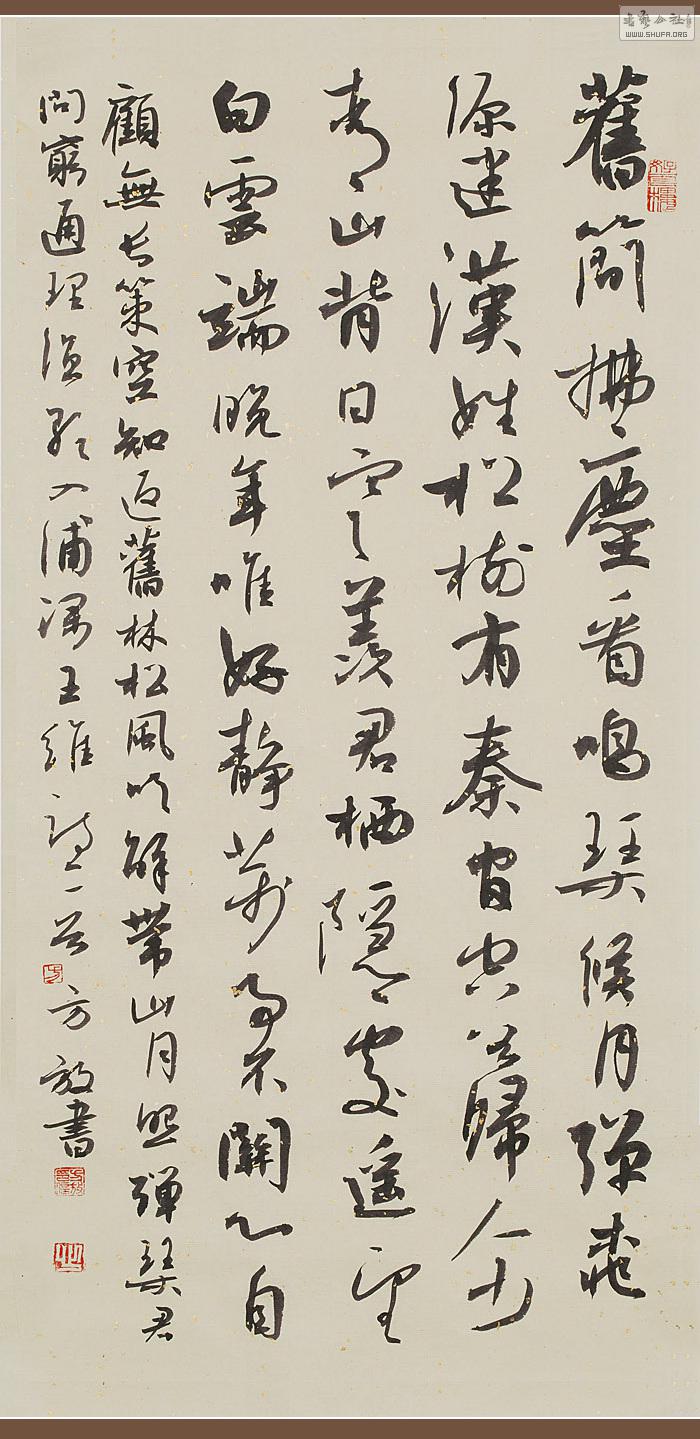 舊簡拂塵看鳴琹候月彈桃
源迷漢姓松樹有秦官空谷歸人少
青山背日寒羨君栖隱處遥望
白雲端晚年唯好靜萬事不關心自
顧無長策空知返舊林松風吹解帶山月照彈琹君
問窮通理漁歌入浦深王維詩二首方放書
WWW.SHUFA.ORG